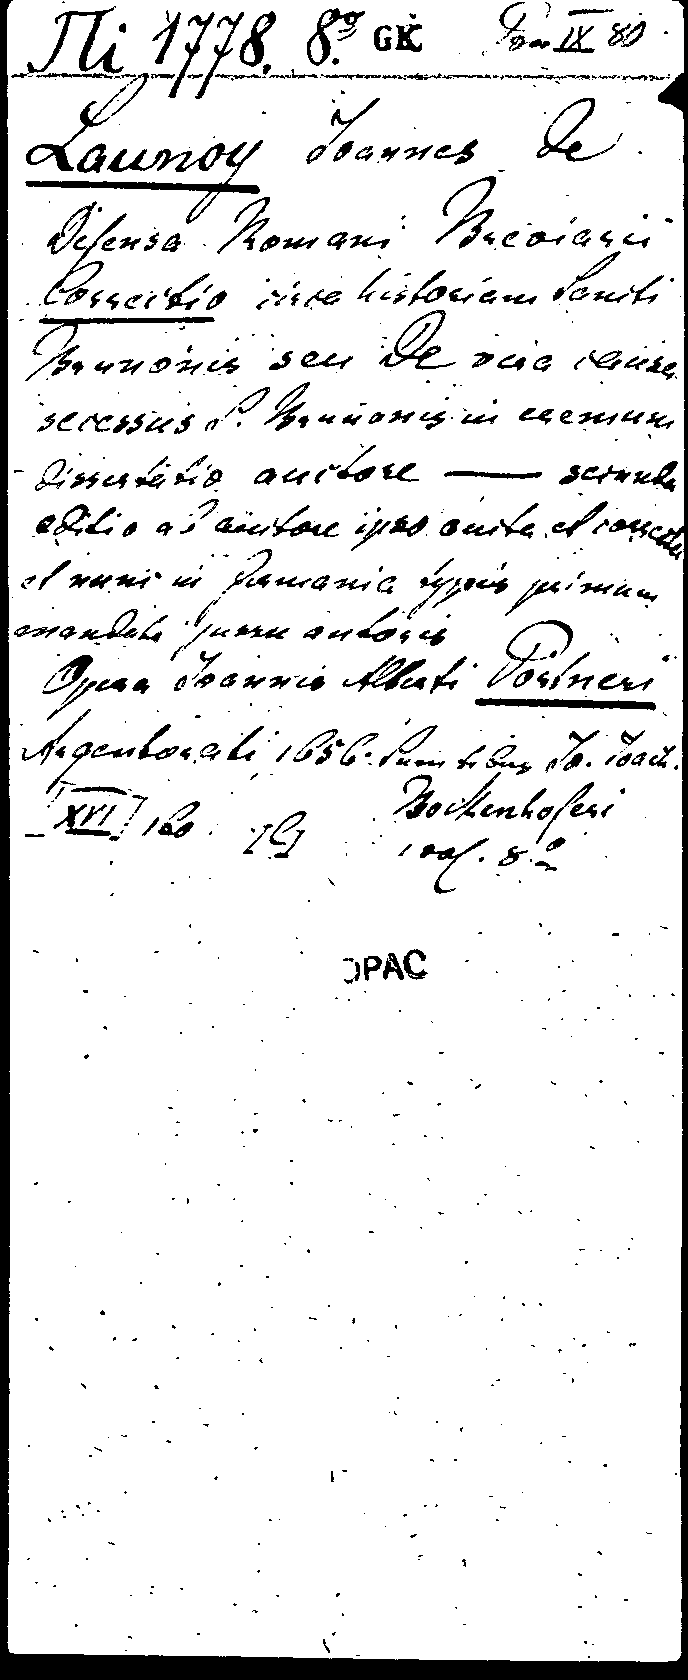 Πi 1778. 8º. GK IX 80.
Launoy Joannes De.
Defensa Romani Breviarii
Correctio circa historiam Sancti
Brunonis seu De vera causa
secessus S. Brunonis in eremum
dissertatio auctore — secunda
editio ab auctore ipso aucta et correcta
et nunc in Germania typis primum
mandata jussu autoris
Opera Joannis Alberti Portneri
Argentorati, 1656. Sumtibus Jo. Joach.
Bockenhoferi
[XVI] 160
1 vol. 8º
OPAC